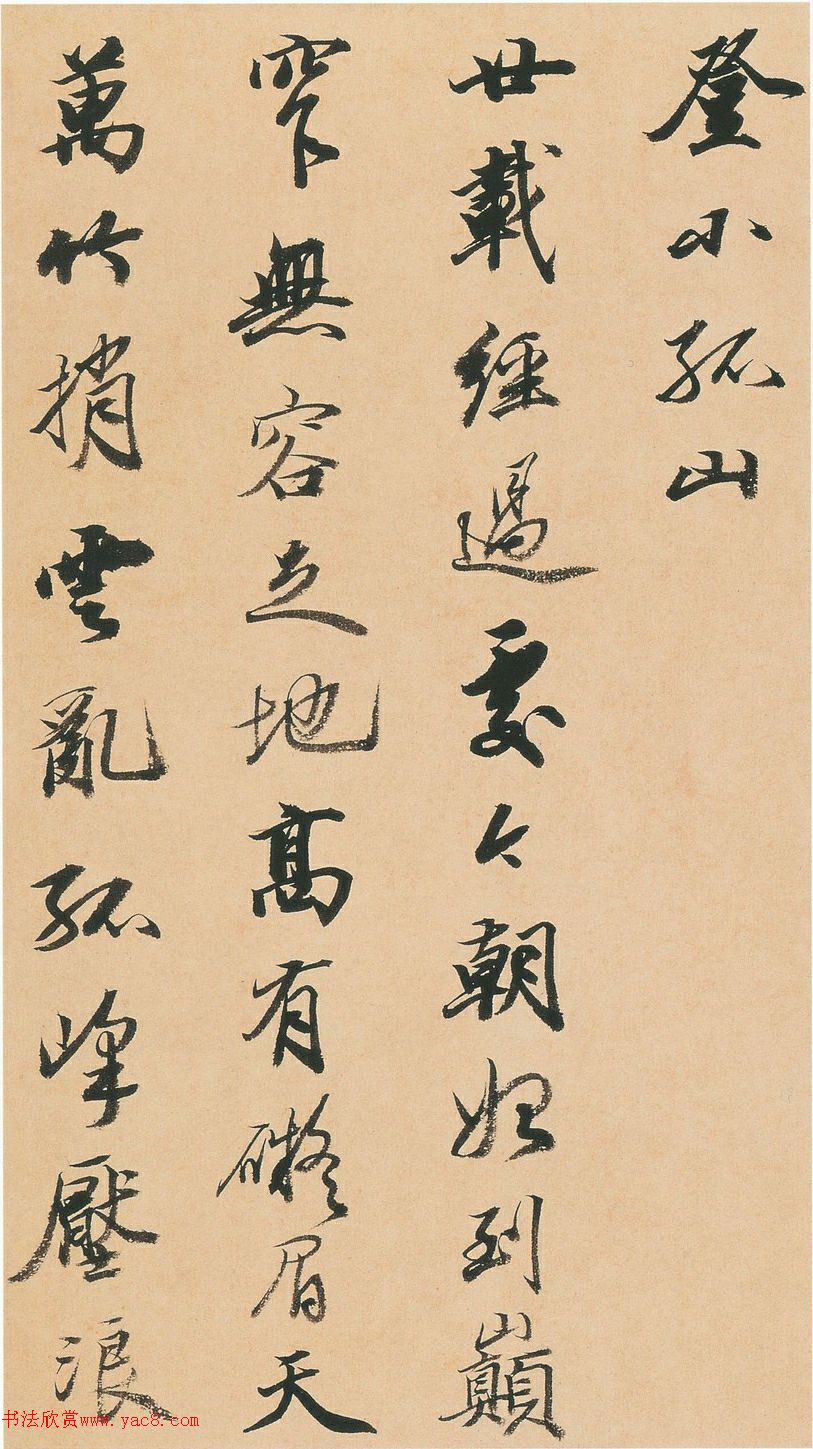 登小孤山
廿載經過處今朝始到巔
窄無容足地高有礙眉天
萬竹捎雲亂孤峰壓浪
书法欣赏www.yac8.com